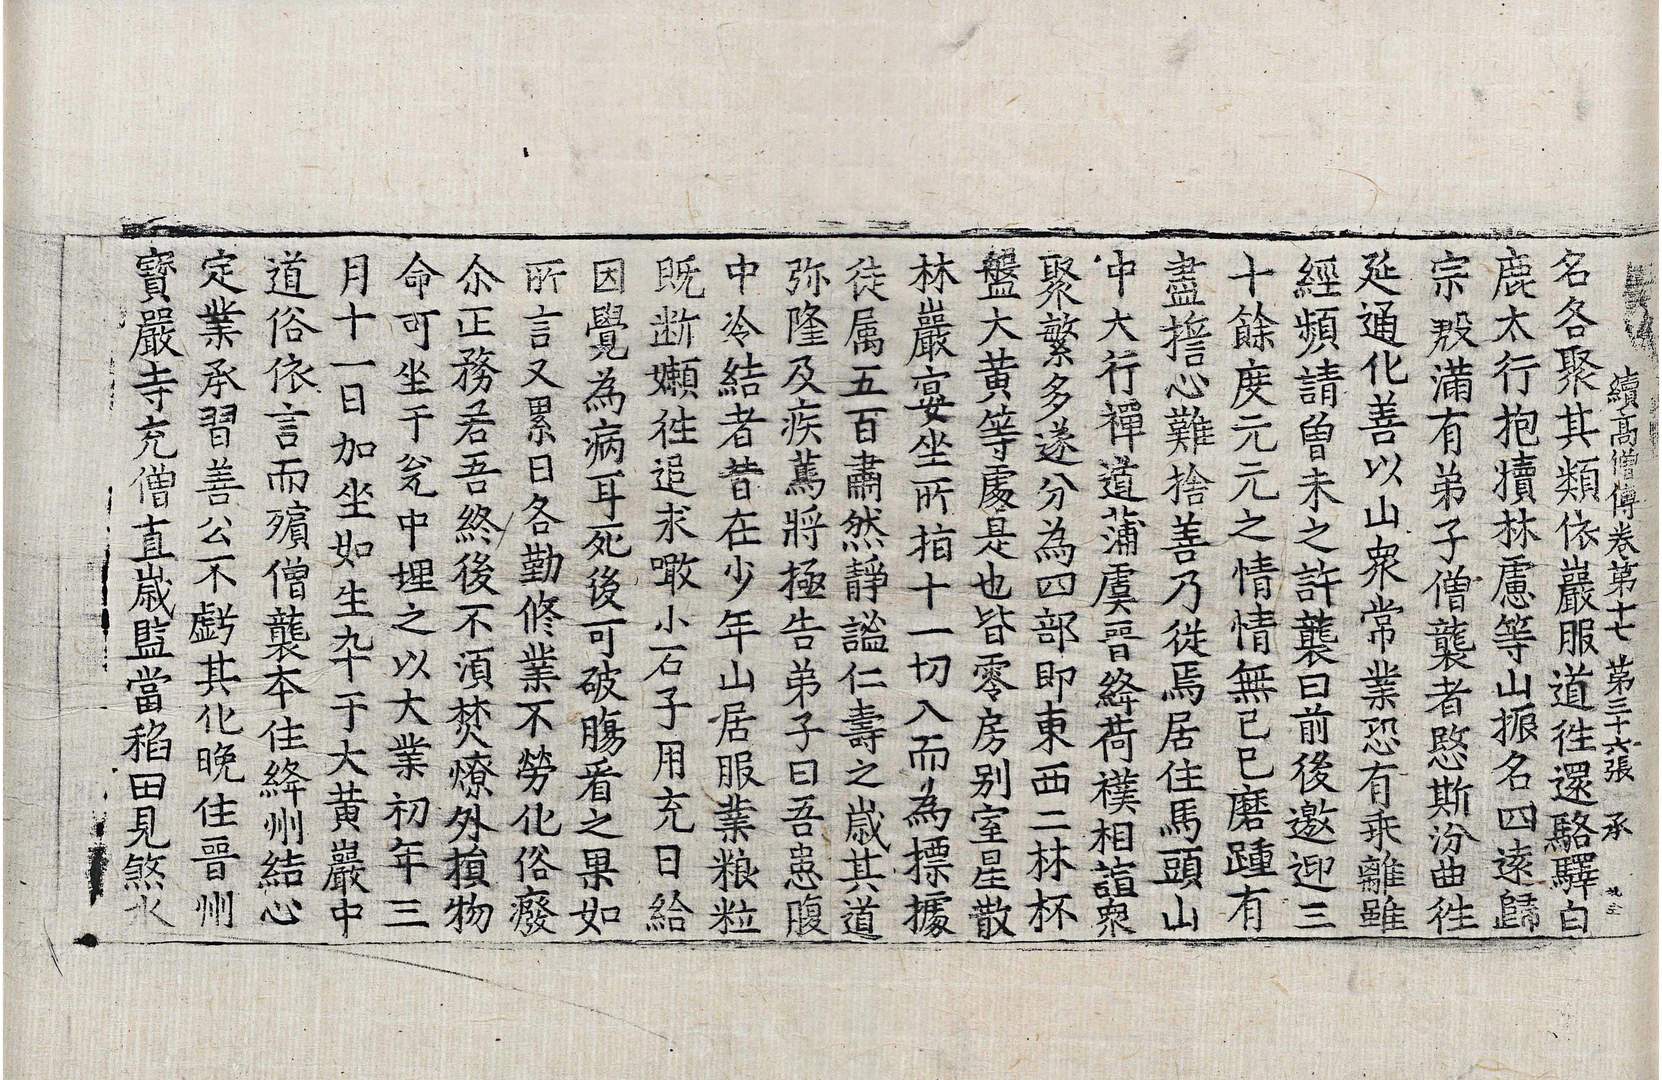 續高僧傳卷第十七 第三十六張 承
名各聚其類依巖服道徃還駱驛白
鹿太行抱犢林慮等山振名四遠歸
宗殷滿有弟子僧襲者愍斯汾曲徃
延通化善以山衆常業恐有乖離雖
經頻請曾未之許襲曰前後邀迎三
十餘度元元之情情無已已磨踵有
盡擔心難捨善乃從焉居住馬頭山
中大行禪道蒲虞晉絳荷襆相諠衆
聚繁多遂分為四部即東西二林杯
盤大黃等處是也皆零房別室星散
林巖宴坐所指十一切入而為標據
徒属五百肅然靜謐仁壽之歲其道
弥隆及疾篤將極告弟子曰吾患腹
中冷結者昔在少年山居服業粮粒
既断嬾徃追求噉小石子用充日給
因覺為病耳死後可破腸看之果如
所言又累曰各勤修業不勞化俗廢
尒正務若吾終後不湏焚燎外損物
命可坐于瓮中埋之以大業初年三
月十一日加坐如生卆于大黃巖中
道俗依言而殯僧襲本住絳州結心
定業承習善公不虧其化晚住晉州
寶嚴寺充僧直歲監當稻田見煞水